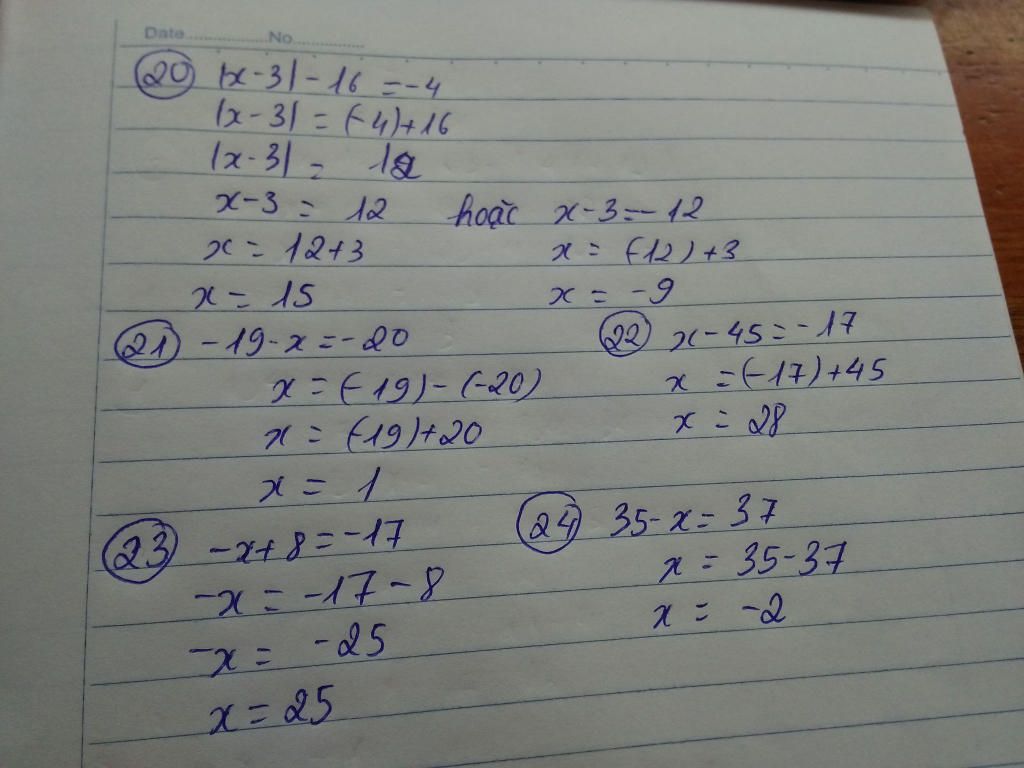 Date................No................
20 |x-3| - 16 = -4
|x-3| = (-4)+16
|x-3| = 12
x-3 = 12 hoặc x-3=-12
x = 12+3 x = (-12)+3
x = 15 x = -9
21 -19-x=-20 22 x-45=-17
x = (-19)-(-20) x = (-17)+45
x = (-19)+20 x = 28
x = 1
23 -x+8=-17 24 35-x=37
-x = -17-8 x = 35-37
-x = -25 x = -2
x = 25